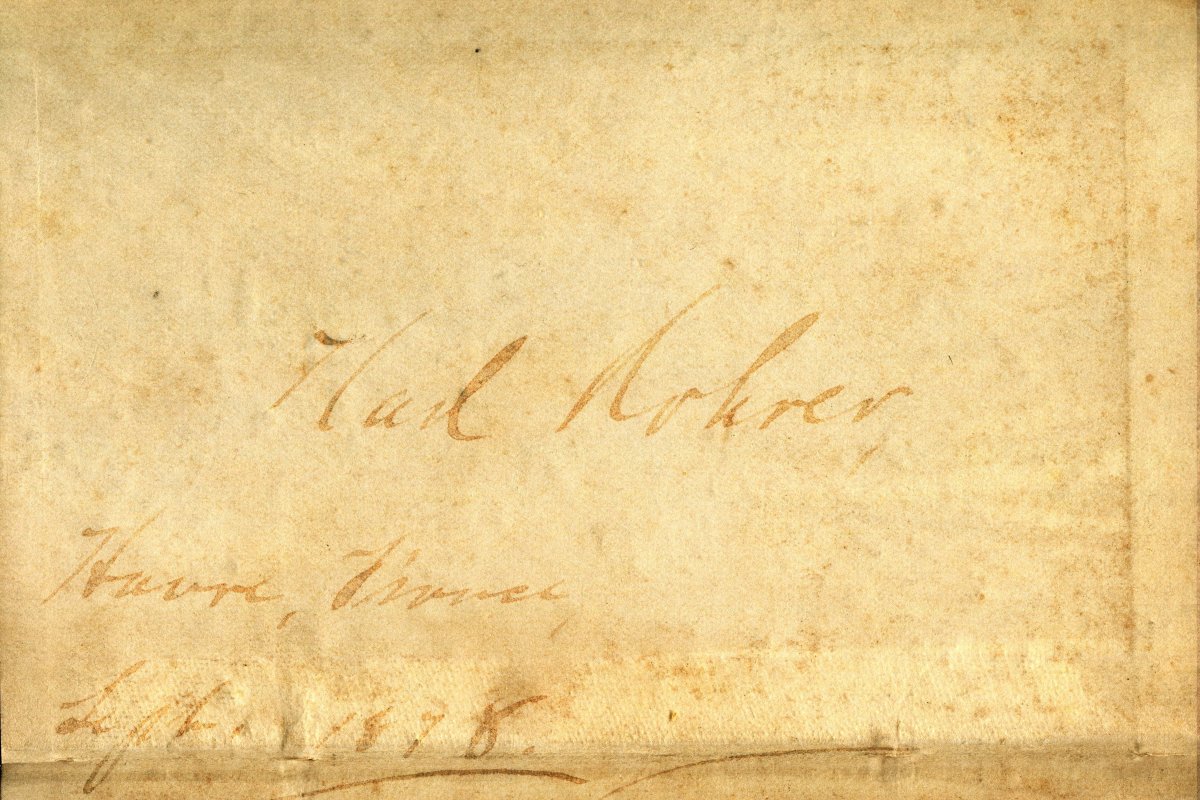 Karl Rohrer,
Havre, France,
Sept. 1878.